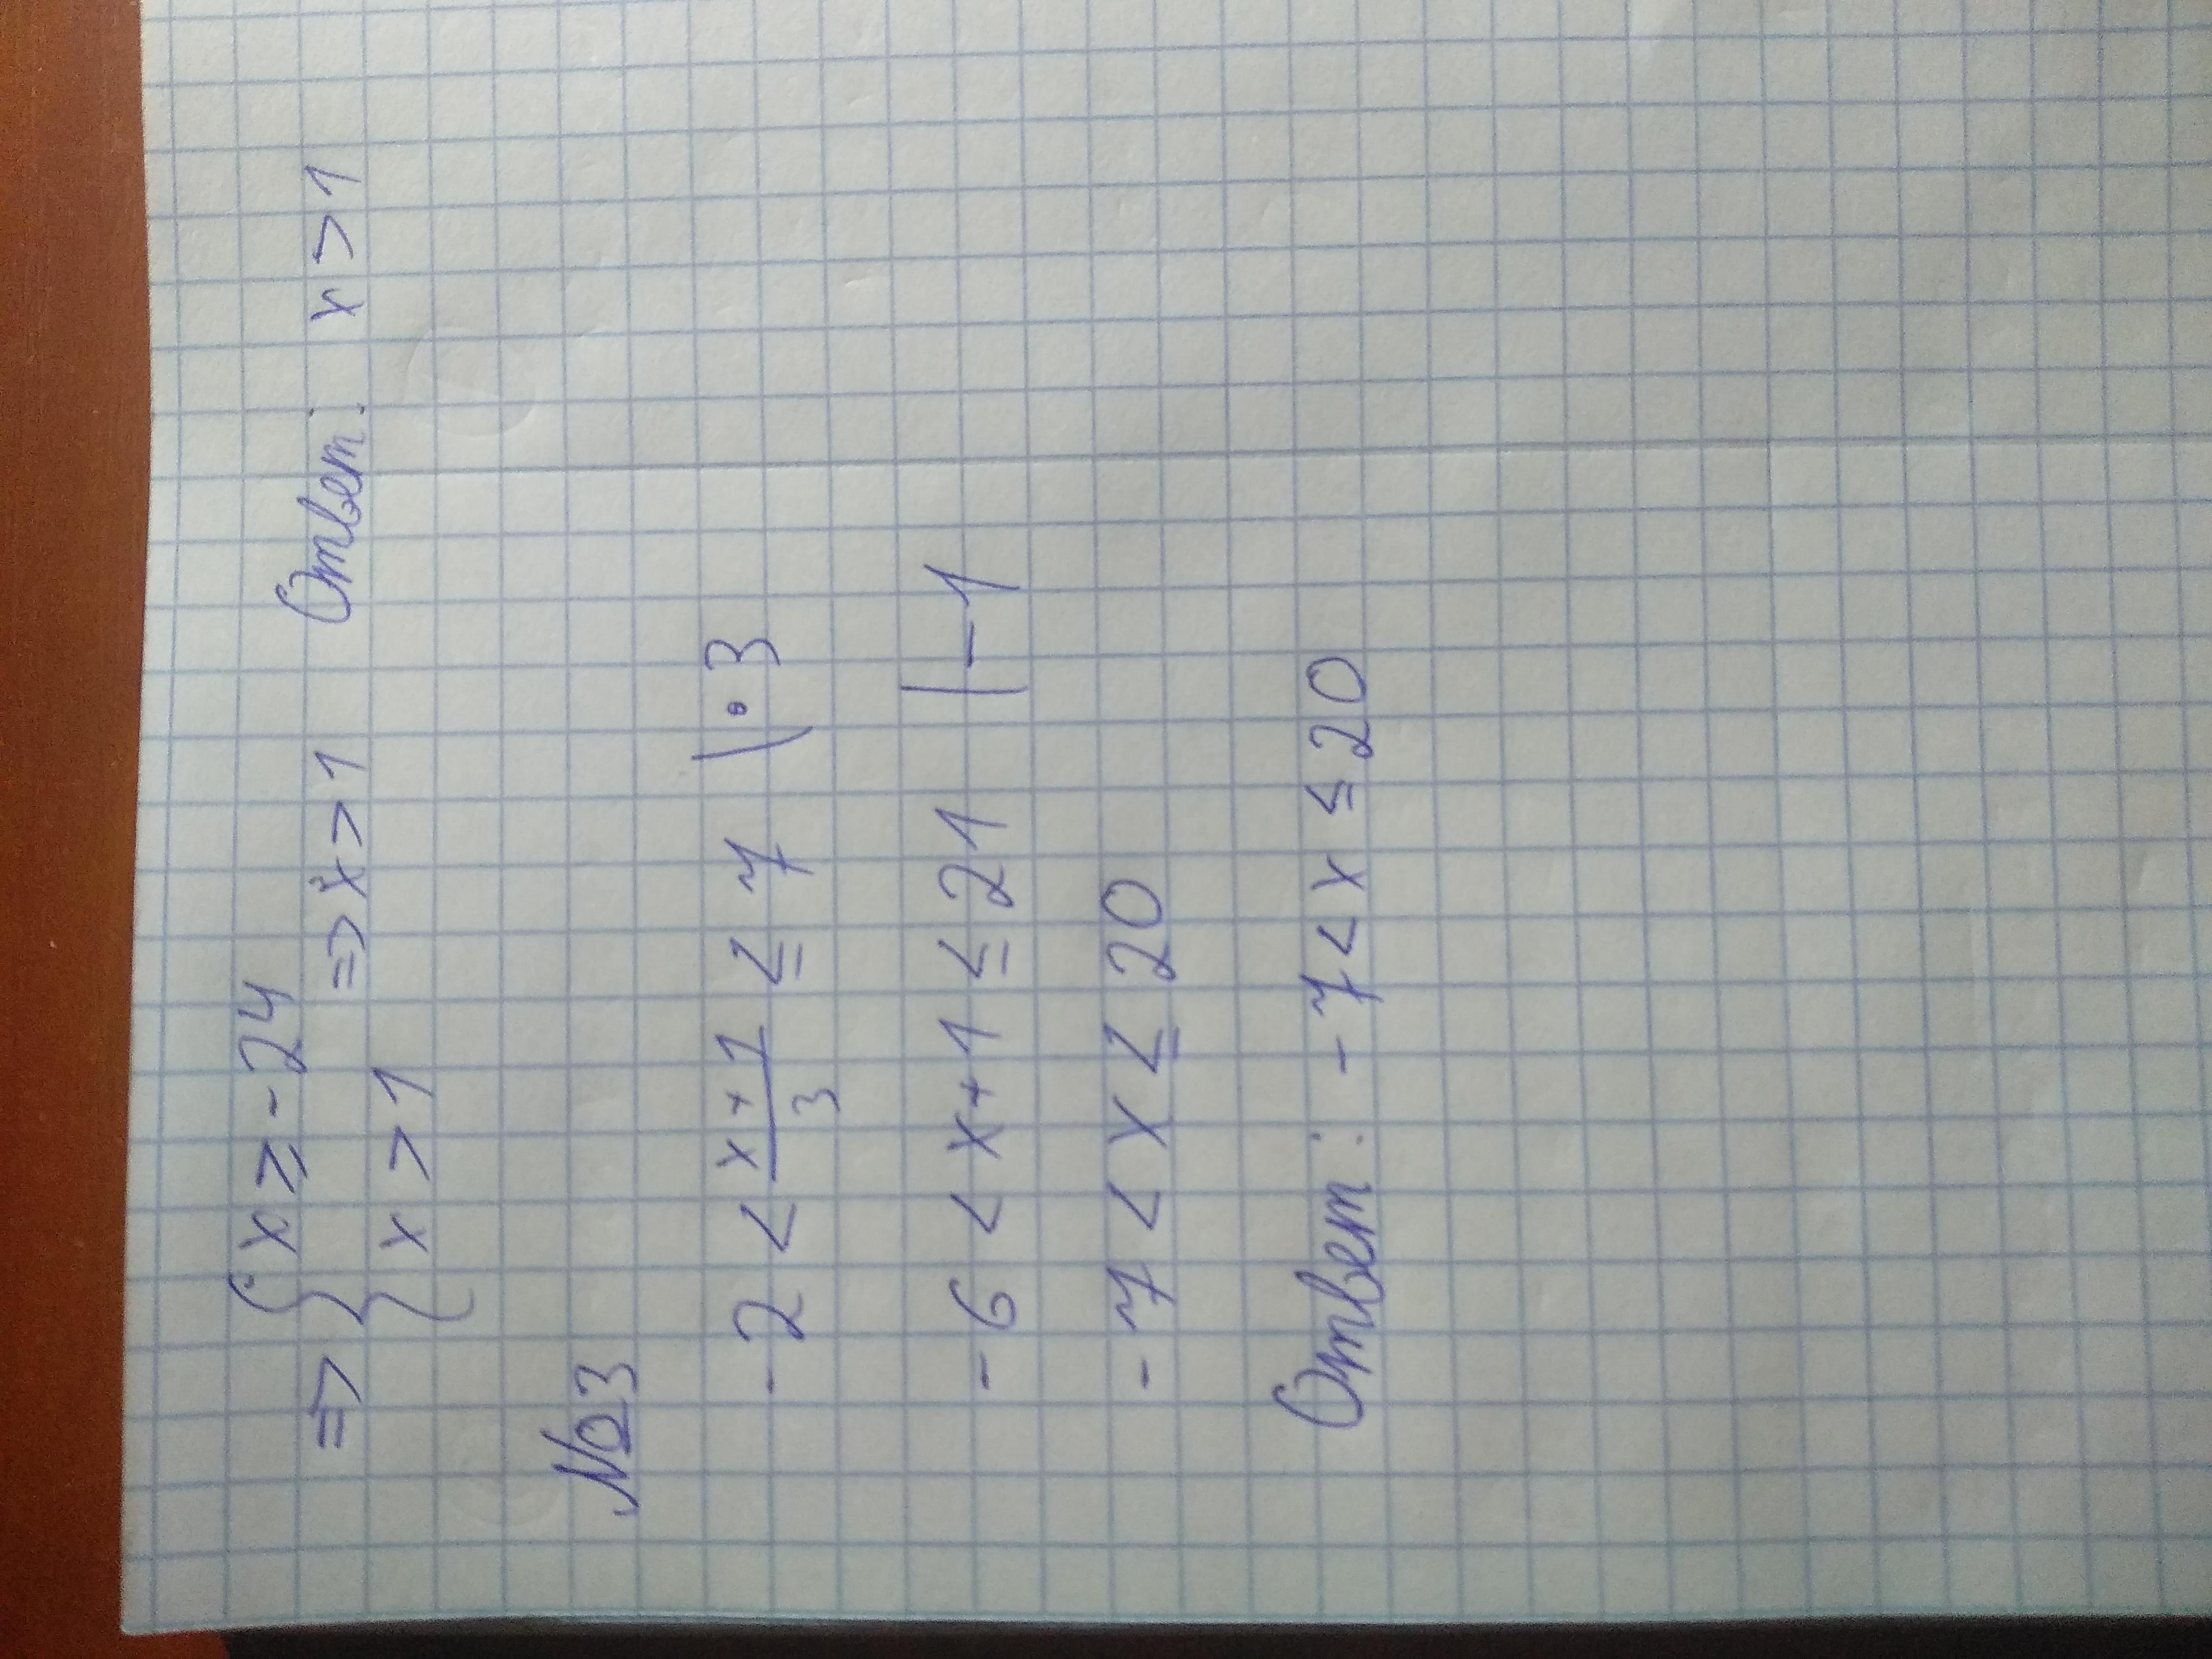 => { x ≥ -24
x > 1 => x > 1 Ответ: x > 1
№3
-2 < (x+1)/3 ≤ 7 | · 3
-6 < x+1 ≤ 21 | -1
-7 < x ≤ 20
Ответ: -7 < x ≤ 20